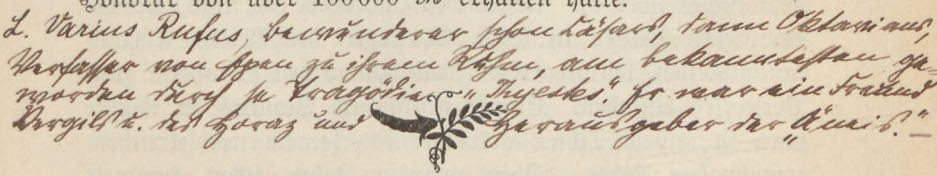 Honorar von über 100000 M erhalten hatte.
L. Varius Rufus, bewunderer schon Cäsars, dann Oktavians,
Verfasser von Epen zu ihrem Ruhm, am bekanntesten ge-
worden durch se Tragödie „Thyestes“. Er war ein Freund
Vergils u. des Horaz und Herausgeber der Äneis.“